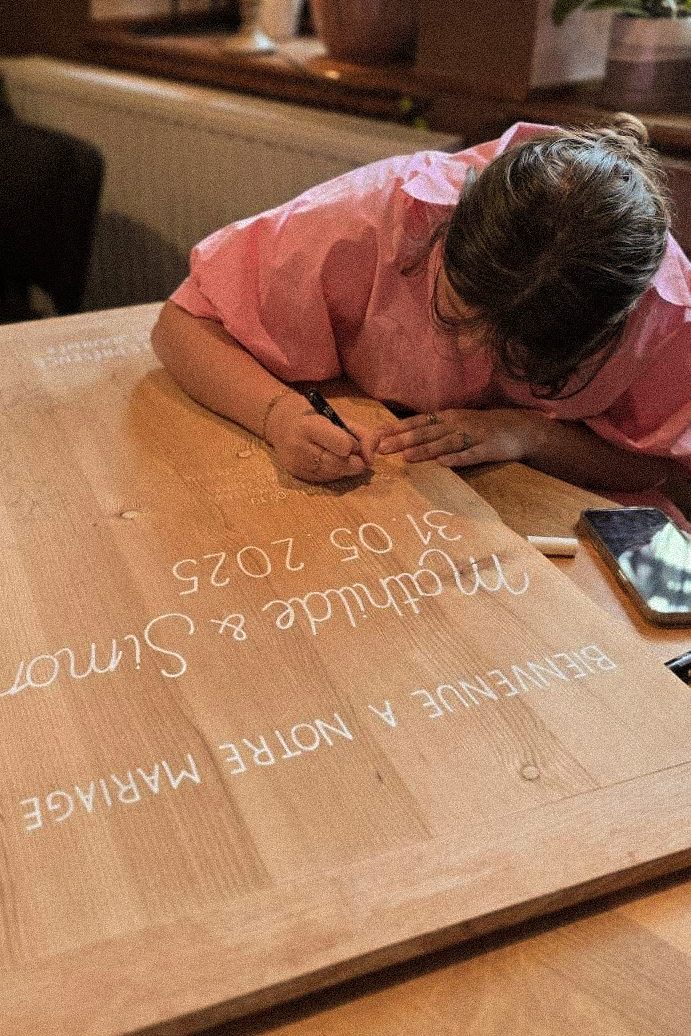 BIENVENUE A NOTRE MARIAGE
Mathilde & Simon
31.05.2025